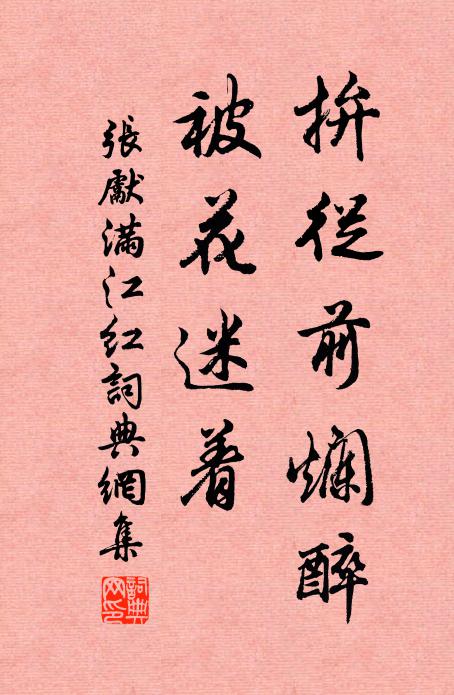 拚從前爛醉
被花迷着
張獻滿江红詞典網集
詞典网印